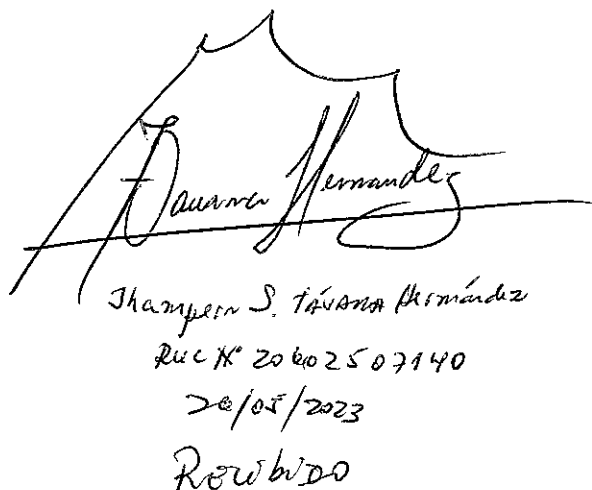 Tavara Hernandez
Jhampeir S. TÁVARA Hernández
RUC Nº 20602507140
20/05/2023
RecibiDO